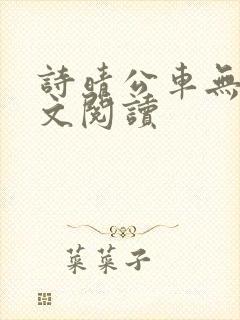 詩晴公車無
文閱讀
菜菜子